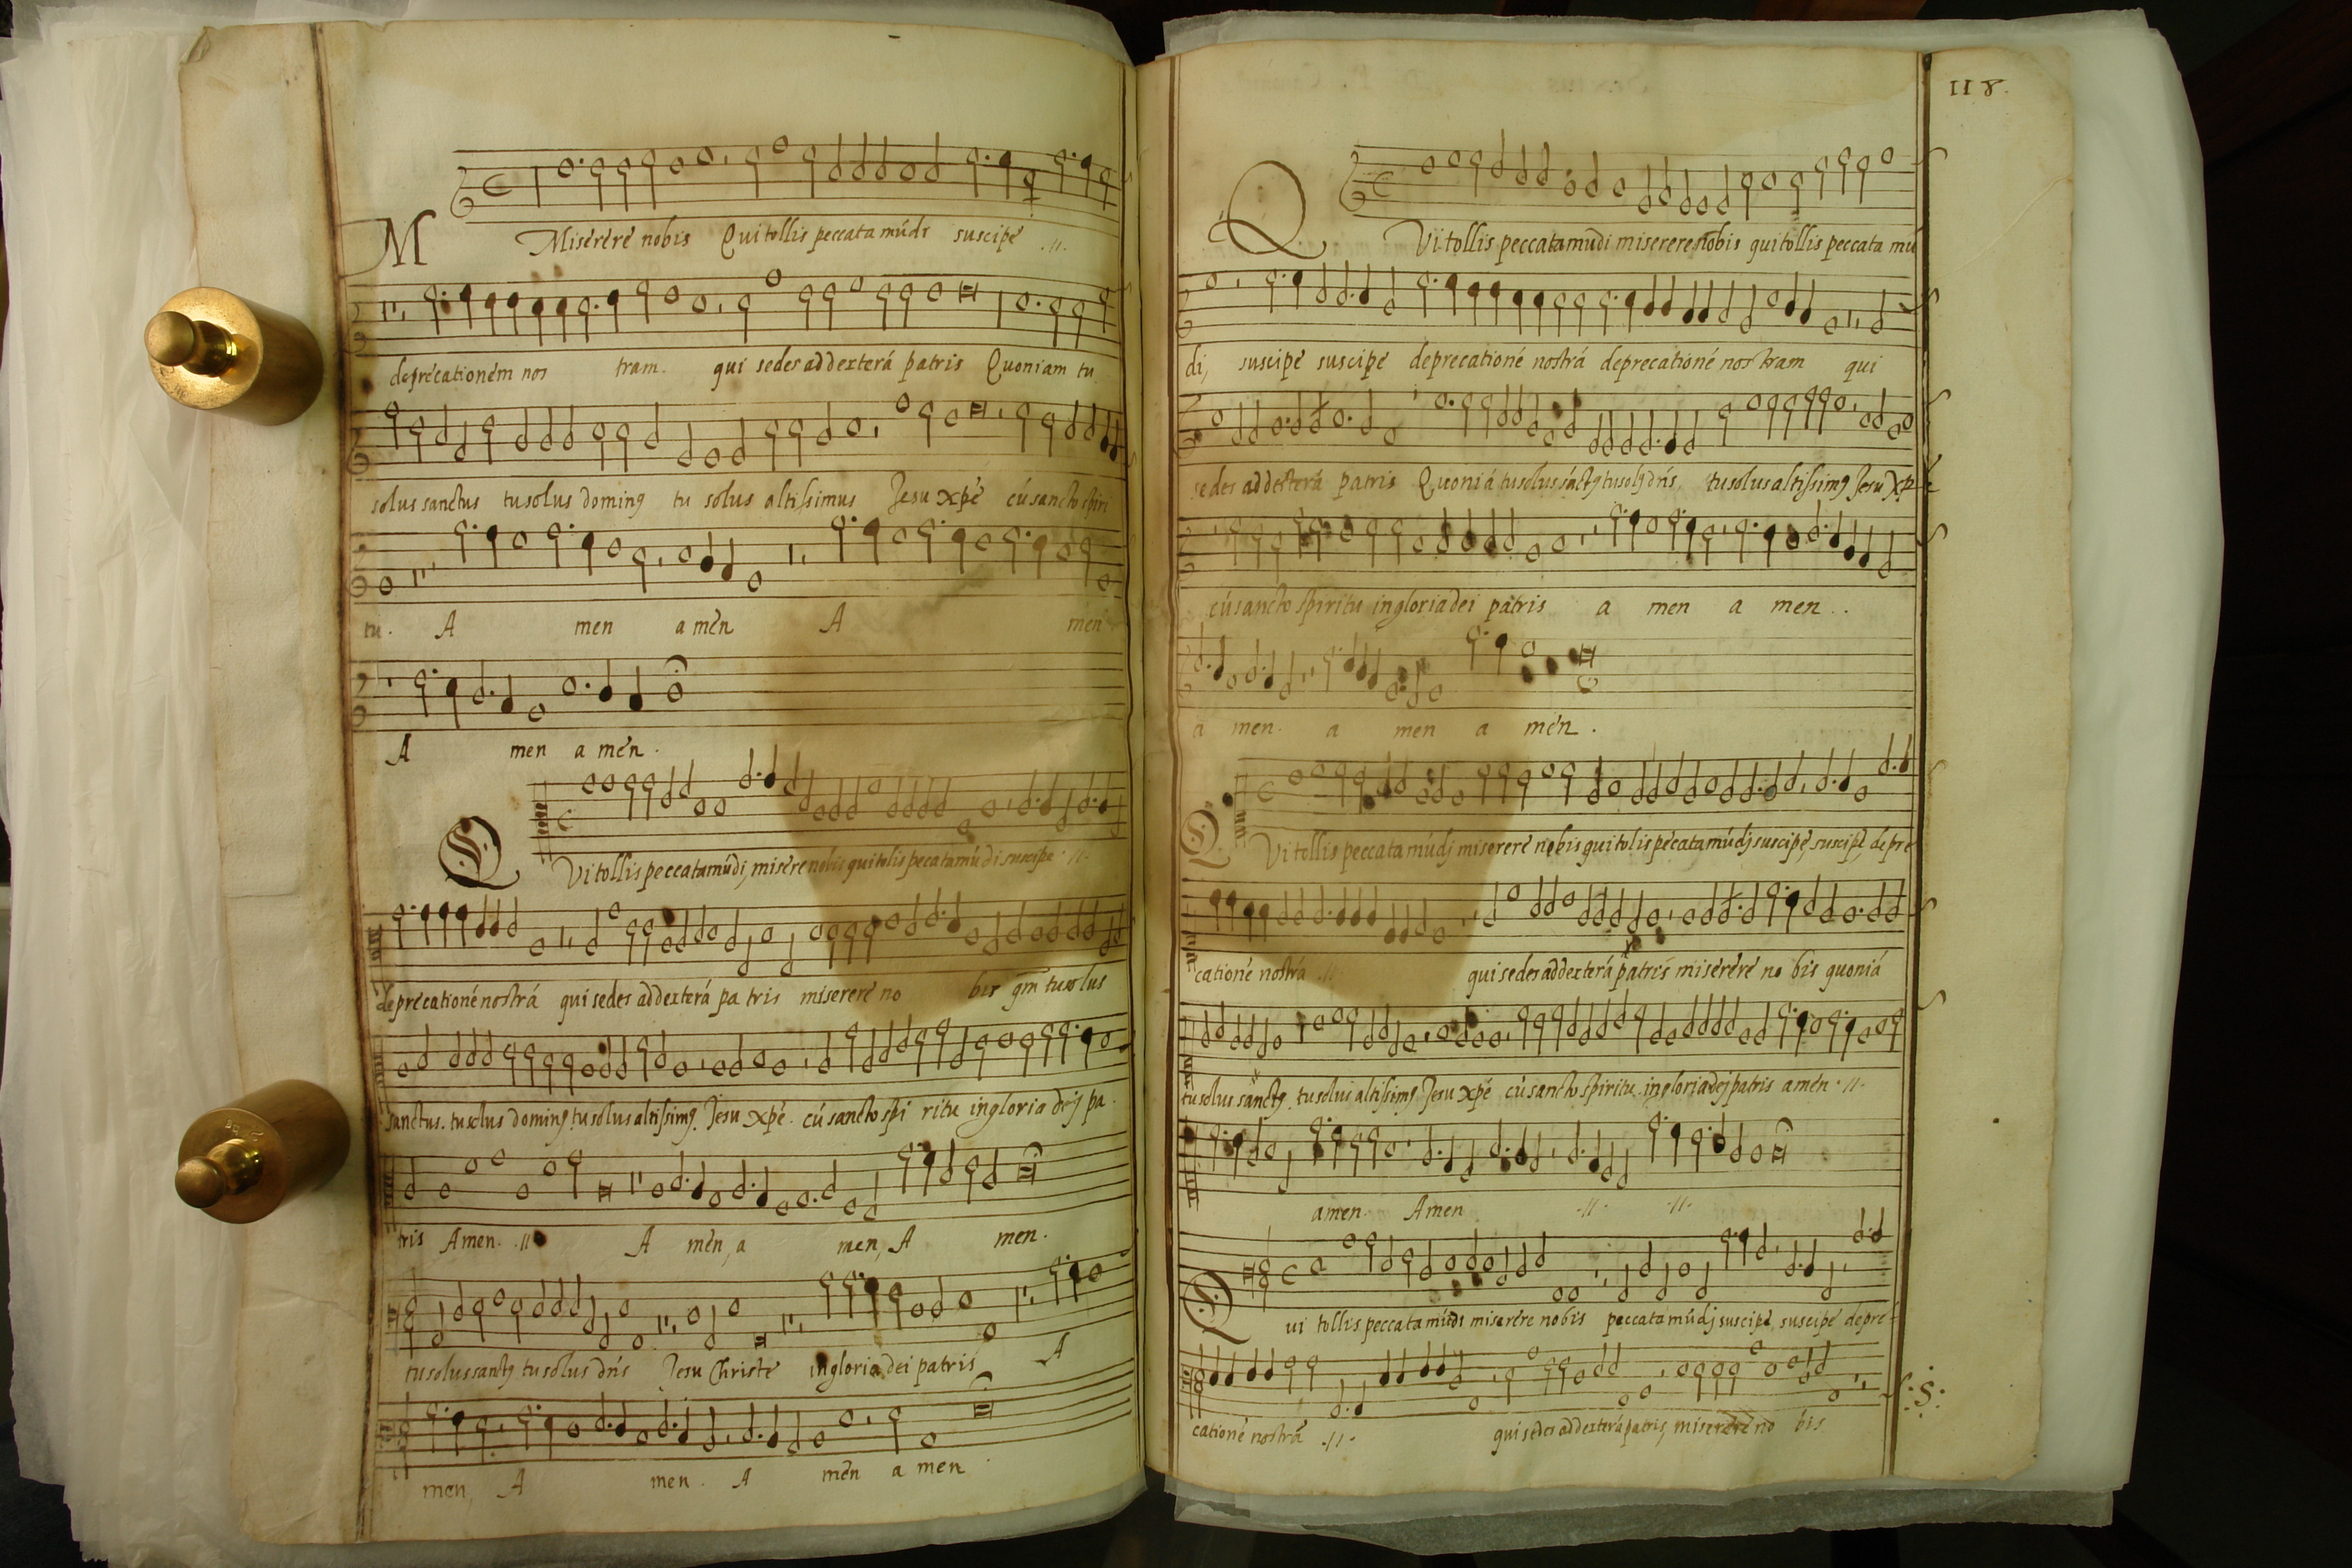 M Miserere nobis Qui tollis peccata mūdi suscipe .11.
deprecationem nos tram. qui sedes ad dexterā patris Quoniam tu
solus sanctus tu solus dominꝰ tu solus altissimus Jesu xpē cū sancto spiri
tu. A men amen A men
A men a men.
Q Vi tollis peccata mūdi, misere nobis qui tolis pecata mūdi suscipe .11.
deprecationē nostrā qui sedes ad dexterā pa tris miserere no bis qm̄ tu solus
sanctus. tu solus dominꝰ tu solus altissimꝰ. Jesu xpē. cū sancto spi ritu in gloria dej pa.
tris Amen. .11. A men, a men, A men.
tu solus sanctꝰ tu solus dn̄s Jesu Christe in gloria dei patris A
men, A men. A men a men.
118.
Q Vi tollis peccata mūdi miserere nobis qui tollis peccata mū
di, suscipe suscipe deprecationē nostrā deprecationē nos tram qui
sedes ad dexterā patris Quoniā tu solus sāctꝰ tu solꝰ dn̄s, tu solus altissimꝰ Jesu Xpē
cū sancto spiritu in gloria dei patris a men a men..
a men. a men a men.
Q Vi tollis peccata mūdj miserere nobis qui tolis pecata mūdj suscipe, suscipe, depre
cationē nostrā .11. qui sedes ad dexterā patris miserere no bis quoniā
tu solus sanctꝰ. tu solus altissimꝰ Jesu xpē cū sancto spiritu. in gloria dej patris amen .11.
amen. Amen .11. .11.
Q ui tollis peccata mūdi miserere nobis peccata mūdj suscipe, suscipe depre-
cationē nostrā .11. qui sedes ad dexterā patris, miserere no bis
.S.